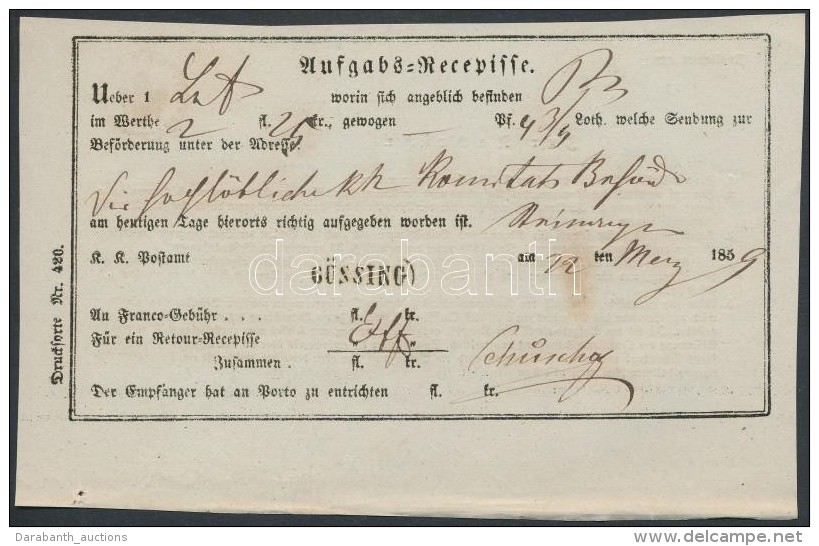 Aufgabs=Recepisse.
Ueber 1 worin sich angeblich befinden
im Werthe 2 fl. 25 kr., gewogen — Pf. 4 3/4 Loth. welche Sendung zur
Beförderung unter der Adresse:
Die hochlöbliche kk Komitats Behörde
am heutigen Tage hierorts richtig aufgegeben worden ist.
K. K. Postamt GÜSSING) am 12 ten Merz 1859
An Franco=Gebühr . . . fl. kr.
Für ein Retour=Recepisse
Zusammen . fl. kr.
Der Empfänger hat an Porto zu entrichten fl. kr.
Drucksorte Nr. 420.
darabanth
Darabanth_auctions
www.delcampe.net